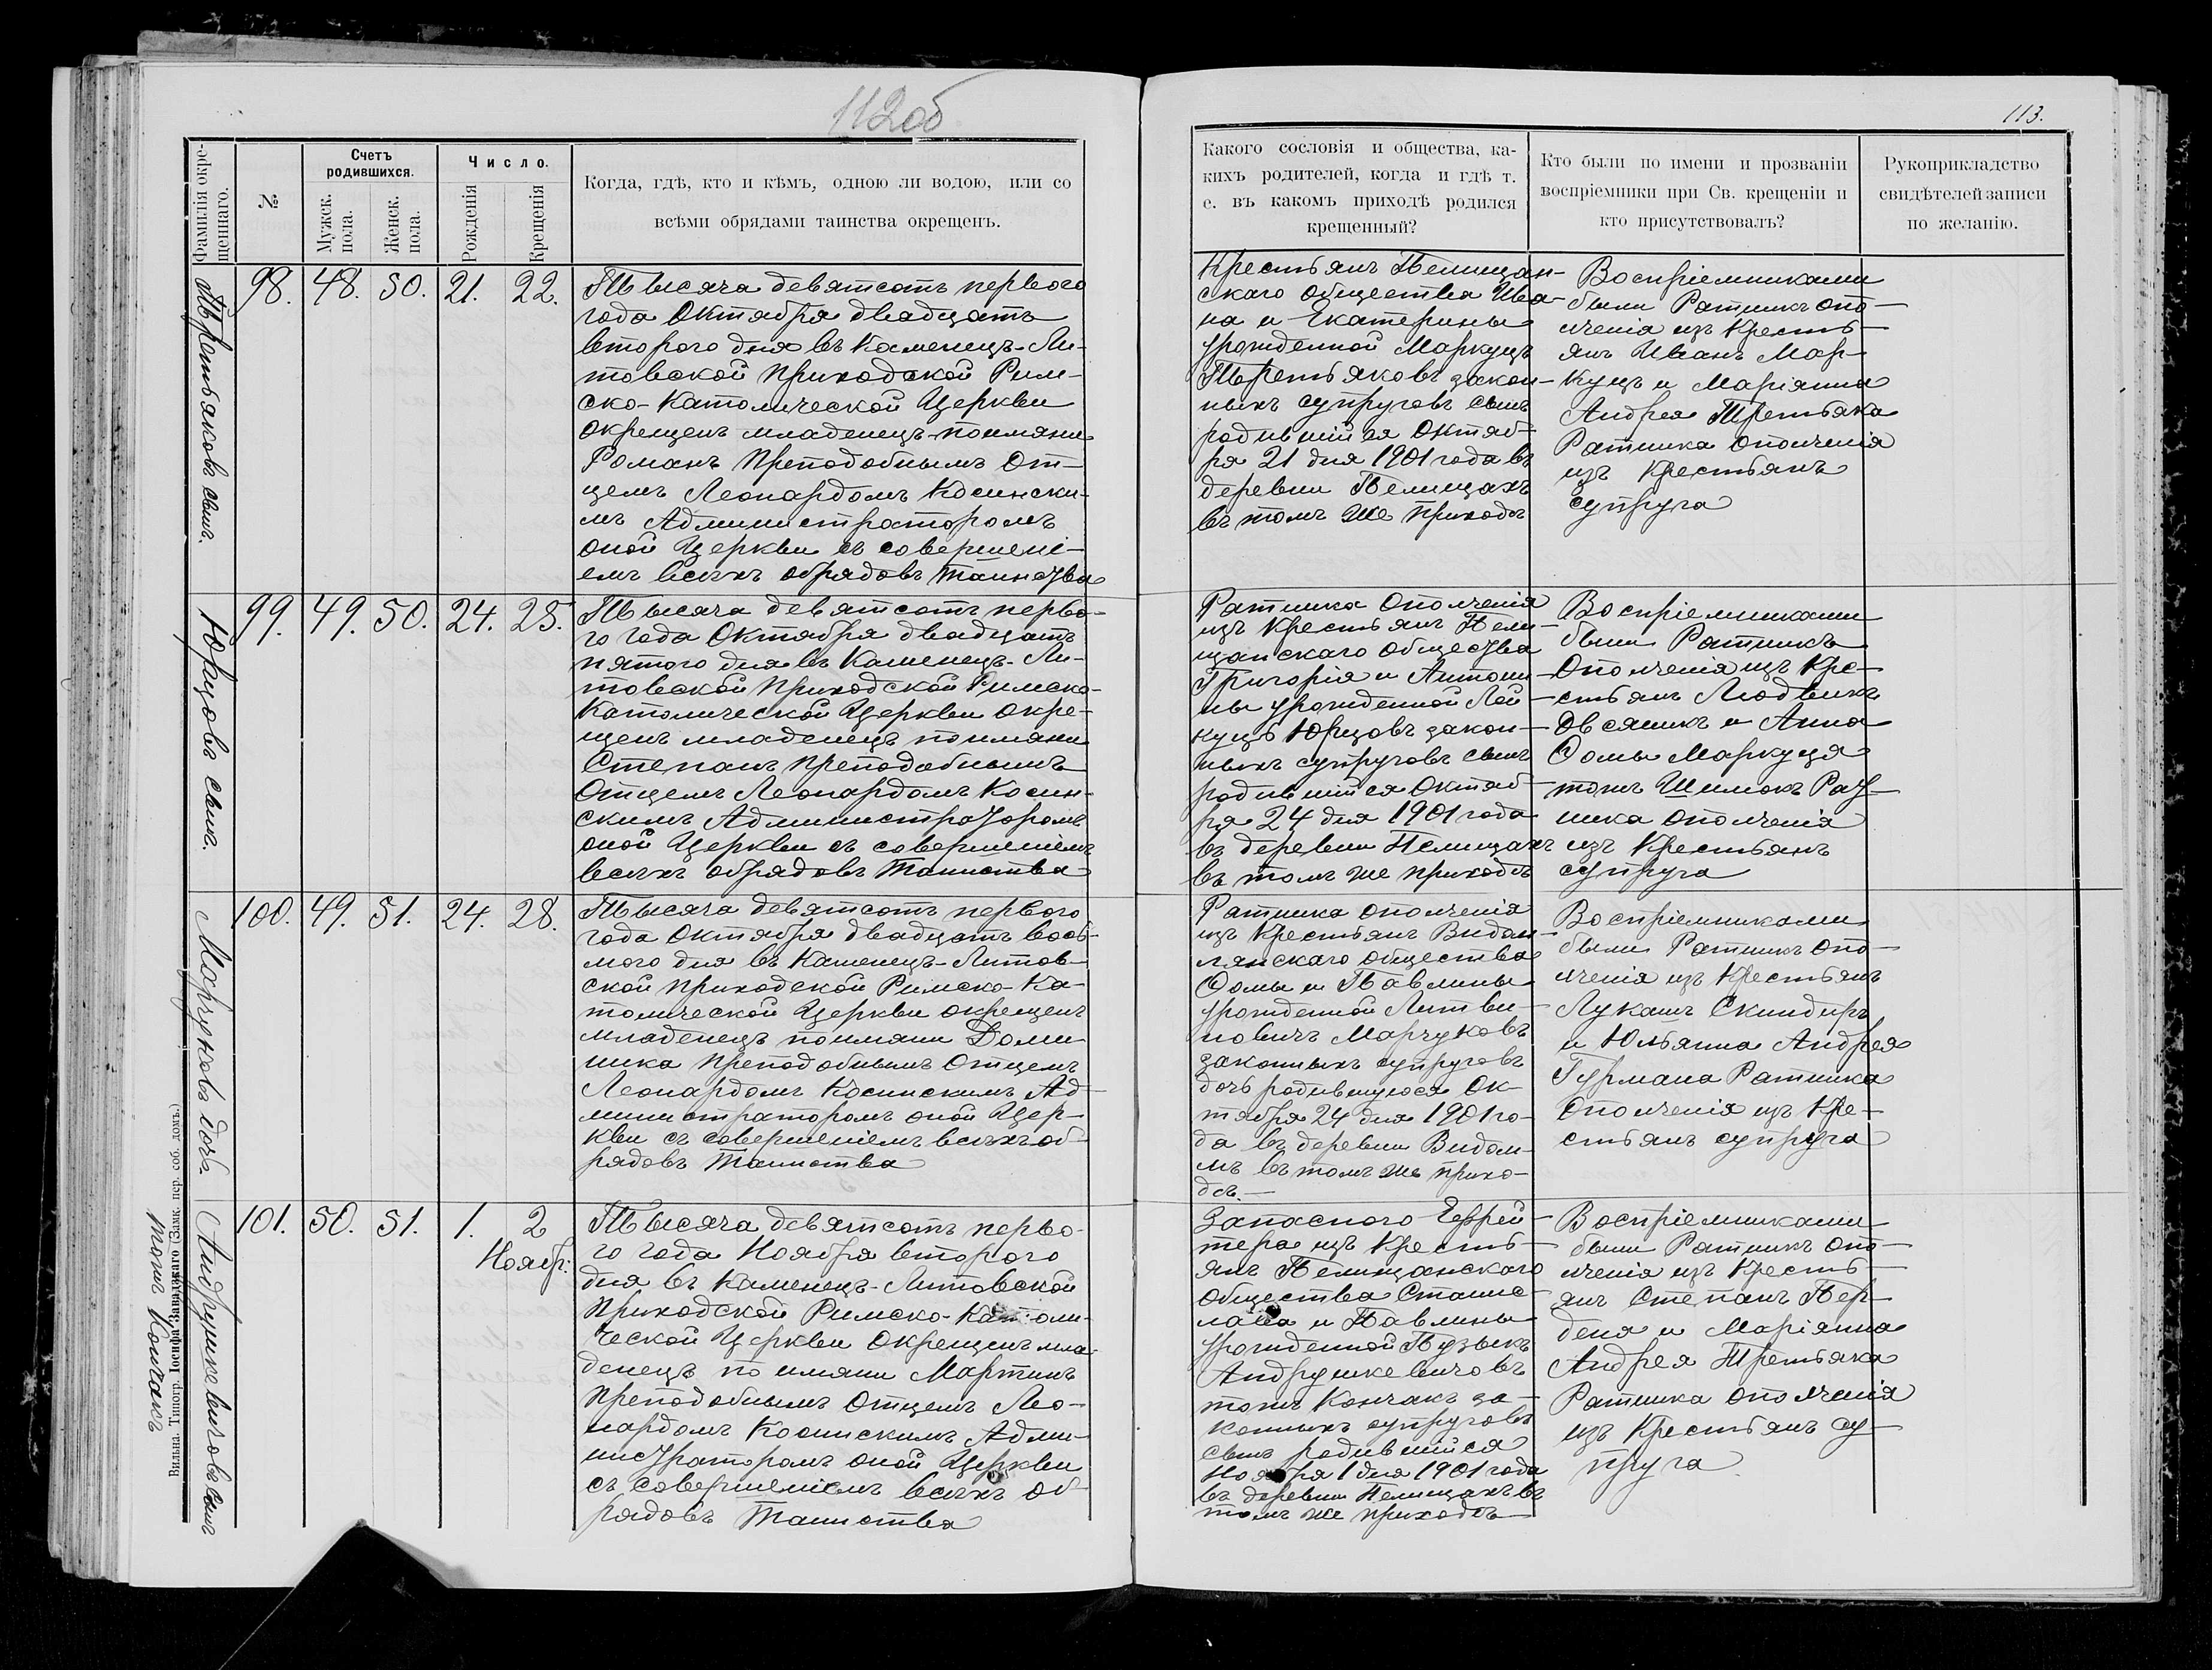 112об
113.
Фамилія окре-
щеннаго.
№
Счетъ
родившихся.
Мужск.
пола.
Женск.
пола.
Число.
Рожденія
Крещенія
Когда, гдѣ, кто и кѣмъ, одною ли водою, или со
всѣми обрядами таинства окрещенъ.
Какого сословія и общества, ка-
кихъ родителей, когда и гдѣ т.
е. въ какомъ приходѣ родился
крещенный?
Кто были по имени и прозванію
воспріемники при Св. крещеніи и
кто присутствовалъ?
Рукоприкладство
свидѣтелей записи
по желанію.
Третьяковъ сынъ.
98. 48. 50. 21. 22.
Тысяча девятсотъ перваго
года Октября двадцать
втораго дня въ Каменецъ-Ли-
товской приходской Рим-
ско-Католической Церкви
окрещенъ младенецъ по имяни
Романъ Преподобнымъ От-
цемъ Леонардомъ Косински-
мъ Администраторомъ
оной Церкви съ совершені-
емъ всѣхъ обрядовъ таинства
Крестьянъ Пелищан-
скаго Общества Ива-
на и Екатерины
урожденной Маркуцъ
Третьяковъ закон-
ныхъ супруговъ сынъ
родившійся Октяб-
ря 21 дня 1901 года въ
деревни Пелищахъ
въ томъ же приходѣ
Воспріемниками
были Ратникъ опо-
лченія изъ Кресть-
янъ Иванъ Мар-
куцъ и Маріянна
Андрея Третьяка
Ратника ополченія
изъ Крестьянъ
супруга
Юрцовъ сынъ.
99. 49. 50. 24. 25.
Тысяча девятсотъ перва-
го года Октября двадцать
пятого дня въ Каменецъ-Ли-
товской Приходской Римско-
Католической Церкви окре-
щенъ младенецъ по имяни
Степанъ Преподобнымъ
Отцемъ Леонардомъ Косин-
скимъ Администраторомъ
оной Церкви съ совершеніемъ
всѣхъ обрядовъ Таинства
Ратника Ополченія
изъ Крестьянъ Пели-
щанскаго Общества
Григорія и Антони-
ны урожденной Лой-
куцъ Юрцовъ закон-
ныхъ супруговъ сынъ
родившійся Октяб-
ря 24 дня 1901 года
въ деревни Пелищахъ
въ томъ же приходѣ
Воспріемниками
были Ратникъ
Ополченія изъ Кре-
стьянъ Людвикъ
Овсяникъ и Анна
Ѳомы Маркуця
тожъ Шимокъ Рат-
ника ополченія
изъ Крестьянъ
супруга
Марчуковъ дочь.
100. 49. 51. 24. 28.
Тысяча девятсотъ перваго
года Октября двадцать вось-
мого дня въ Каменецъ-Литов-
ской приходской Римско-Ка-
толической Церкви окрещенъ
младенецъ по имяни Доми
ника Преподобнымъ Отцемъ
Леонардомъ Косинскимъ Ад-
министраторомъ оной Цер-
кви съ совершеніемъ всѣхъ об-
рядовъ Таинства
Ратника ополченія
изъ Крестьянъ Видом-
лянскаго общества
Ѳомы и Павлины
урожденной Литви-
новичъ Марчуковъ
законныхъ супруговъ
дочь родившуюся Ок-
тября 24 дня 1901 го-
да въ деревни Видом-
мъ въ томъ же прихо-
дѣ.
Воспріемниками
были Ратникъ опо-
лченія изъ Крестьянъ
Лукашъ Скиндиръ
и Юльянна Андрея
Гурмана Ратника
Ополченія изъ Кре-
стьянъ супруга
Андрушкевичовъ сынъ
тожъ Кончакъ
101. 50. 51. 1. 2
Ноябр:
Тысяча девятсотъ перва-
го года Ноября второго
дня въ Каменецъ-Литовской
Приходской Римско-Католи-
ческой Церкви Окрещенъ мла-
денецъ по имяни Мартинъ
Преподобнымъ Отцемъ Лео-
нардомъ Косинскимъ Адми-
нистраторомъ оной Церкви
съ совершеніемъ всѣхъ об-
рядовъ Таинства
Запасного Ефрей-
тера изъ Кресть-
янъ Пелищанскаго
Общества Станис-
лава и Павлины
урожденной Пузыкъ
Андрушкевичовъ
тожъ Кончакъ за-
конныхъ супруговъ
сынъ родившійся
Ноября 1 дня 1901 года
въ деревни Пелищахъ въ
томъ же приходѣ
Воспріемниками
были Ратникъ опо-
лченія изъ Кресть-
янъ Степанъ Пер-
деня и Маріянна
Андрея Третьяка
Ратника ополченія
изъ Крестьянъ су-
пруга
Вильна. Типогр. Іосифа Завадзкаго (Замк. пер. соб. домъ.)